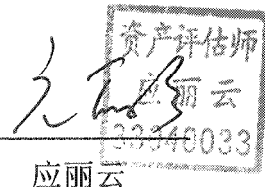 资产评估师
应丽云
33040033
应丽云